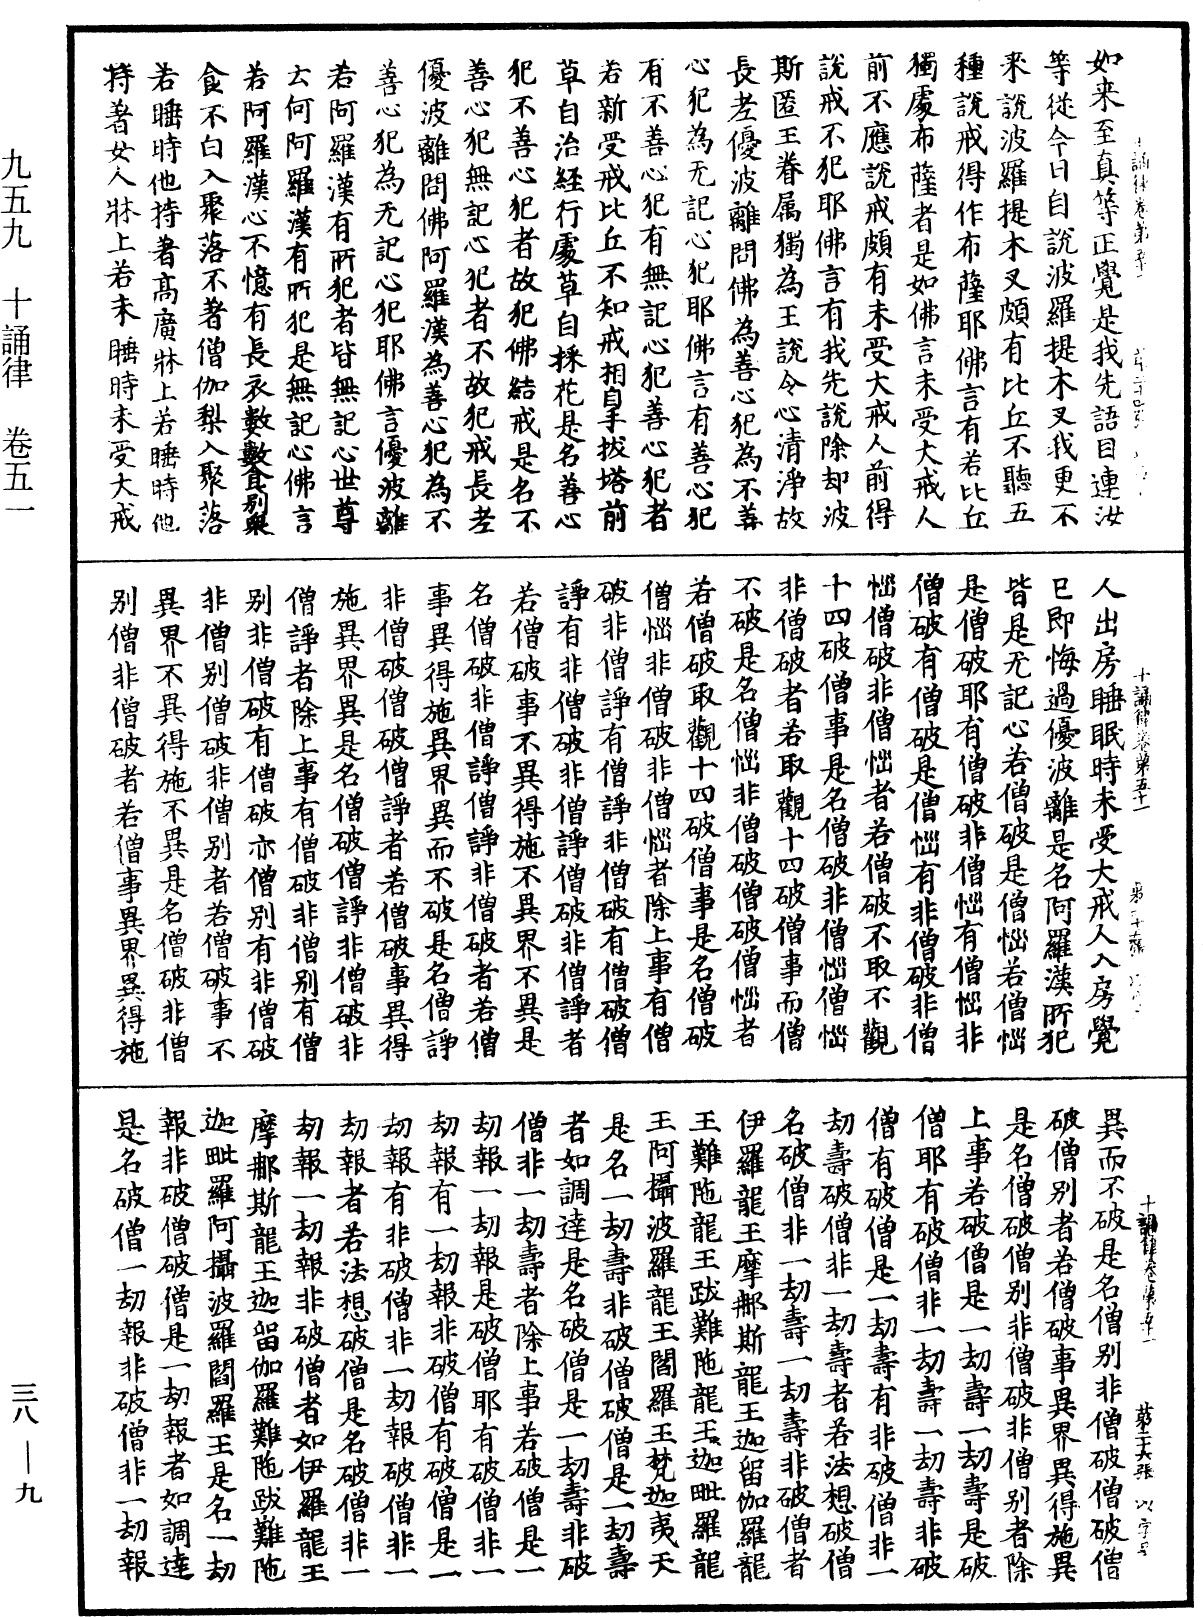 如来至真等正覺是我先語目連汝
等從今日自說波羅提木叉我更不
来說波羅提木叉頗有比丘不聽五
種說戒得作布薩耶佛言有若比丘
獨處布薩者是如佛言未受大戒人
前不應說戒頗有未受大戒人前得
說戒不犯耶佛言有我先說除却波
斯匿王眷属獨為王說令心清淨故
長老優波離問佛為善心犯為不善
心犯為无記心犯耶佛言有善心犯
有不善心犯有無記心犯善心犯者
若新受戒比丘不知戒相自手拔塔前
草自治經行處草自採花是名善心
犯不善心犯者故犯佛結戒是名不
善心犯無記心犯者不故犯戒長老
優波離問佛阿羅漢為善心犯為不
善心犯為无記心犯耶佛言優波離
若阿羅漢有所犯者皆無記心世尊
云何阿羅漢有所犯是無記心佛言
若阿羅漢心不憶有長衣數數食別衆
食不白入聚落不著僧伽梨入聚落
若睡時他持著髙廣牀上若睡時他
持著女人牀上若未睡時未受大戒
人出房睡眠時未受大戒人入房覺
已即悔過優波離是名阿羅漢所犯
皆是无記心若僧破是僧惱若僧惱
是僧破耶有僧破非僧惱有僧惱非
僧破有僧破是僧惱有非僧破非僧
惱僧破非僧惱者若僧破不取不觀
十四破僧事是名僧破非僧惱僧惱
非僧破者若取觀十四破僧事而僧
不破是名僧惱非僧破僧破僧惱者
若僧破取觀十四破僧事是名僧破
僧惱非僧破非僧惱者除上事有僧
破非僧諍有僧諍非僧破有僧破僧
諍有非僧破非僧諍僧破非僧諍者
若僧破事不異得施不異界不異是
名僧破非僧諍僧諍非僧破者若僧
事異得施異界異而不破是名僧諍
非僧破僧破僧諍者若僧破事異得
施異界異是名僧破僧諍非僧破非
僧諍者除上事有僧破非僧別有僧
別非僧破有僧破亦僧別有非僧破
非僧別僧破非僧別者若僧破事不
異界不異得施不異是名僧破非僧
別僧非僧破者若僧事異界異得施
異而不破是名僧別非僧破僧破僧
破僧別者若僧破事異界異得施異
是名僧破僧別非僧破非僧別者除
上事若破僧是一劫壽一劫壽是破
僧耶有破僧非一劫壽一劫壽非破
僧有破僧是一劫壽有非破僧非一
劫壽破僧非一劫壽者若法想破僧
名破僧非一劫壽一劫壽非破僧者
伊羅龍王摩那斯龍王迦留伽羅龍
王難陁龍王跋難陁龍王迦毗羅龍
王阿攝波羅龍王閻羅王梵迦夷天
是名一劫壽非破僧破僧是一劫壽
者如調達是名破僧是一劫壽非破
僧非一劫壽者除上事若破僧是一
劫報一劫報是破僧耶有破僧非一
劫報有一劫報非破僧有破僧是一
劫報有非破僧非一劫報破僧非一
劫報者若法想破僧是名破僧非一
劫報一劫報非破僧者如伊羅龍王
摩那斯龍王迦留伽羅難陁跋難陁
迦毗羅阿攝波羅閻羅王是名一劫
報非破僧破僧是一劫報者如調達
是名破僧一劫報非破僧非一劫報
九五九 十誦律 卷五一
三八—九